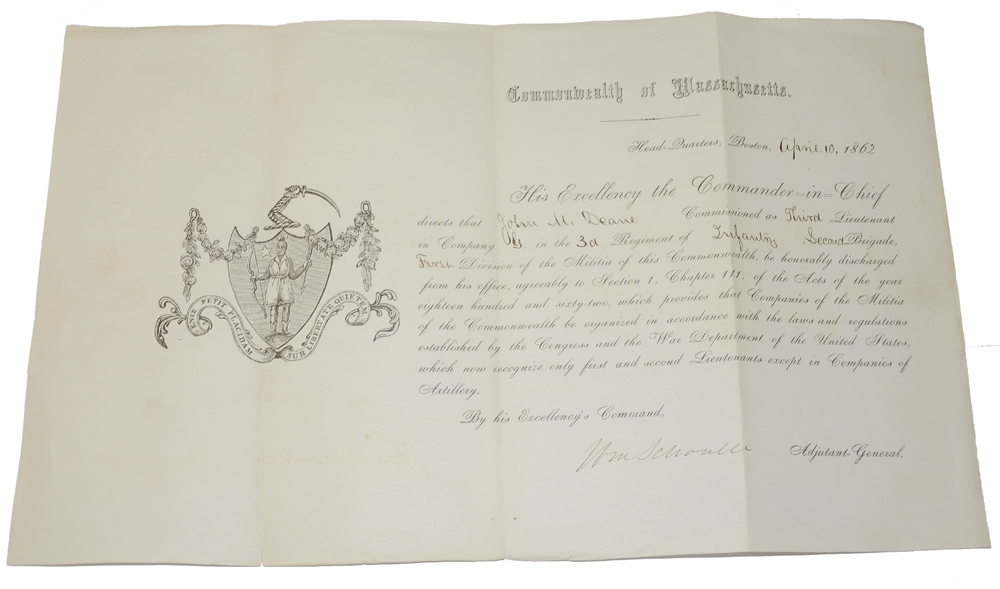 Commonwealth of Massachusetts.
Head-Quarters, Boston, April 10, 1862
His Excellency the Commander-in-Chief
directs that John M. Deane Commissioned as Third Lieutenant
in Company G. in the 3d Regiment of Infantry Second Brigade,
First Division of the Militia of this Commonwealth, be honorably discharged
from his office, agreeably to Section 1, Chapter 111, of the Acts of the year
eighteen hundred and sixty-two, which provides that Companies of the Militia
of the Commonwealth be organized in accordance with the laws and regulations
established by the Congress and the War Department of the United States,
which now recognize only first and second Lieutenants except in Companies of
Artillery.
By his Excellency's Command,
Wm Schouler
Adjutant-General.
ENSE PETIT PLACIDAM SUB LIBERTATE QUIETEM